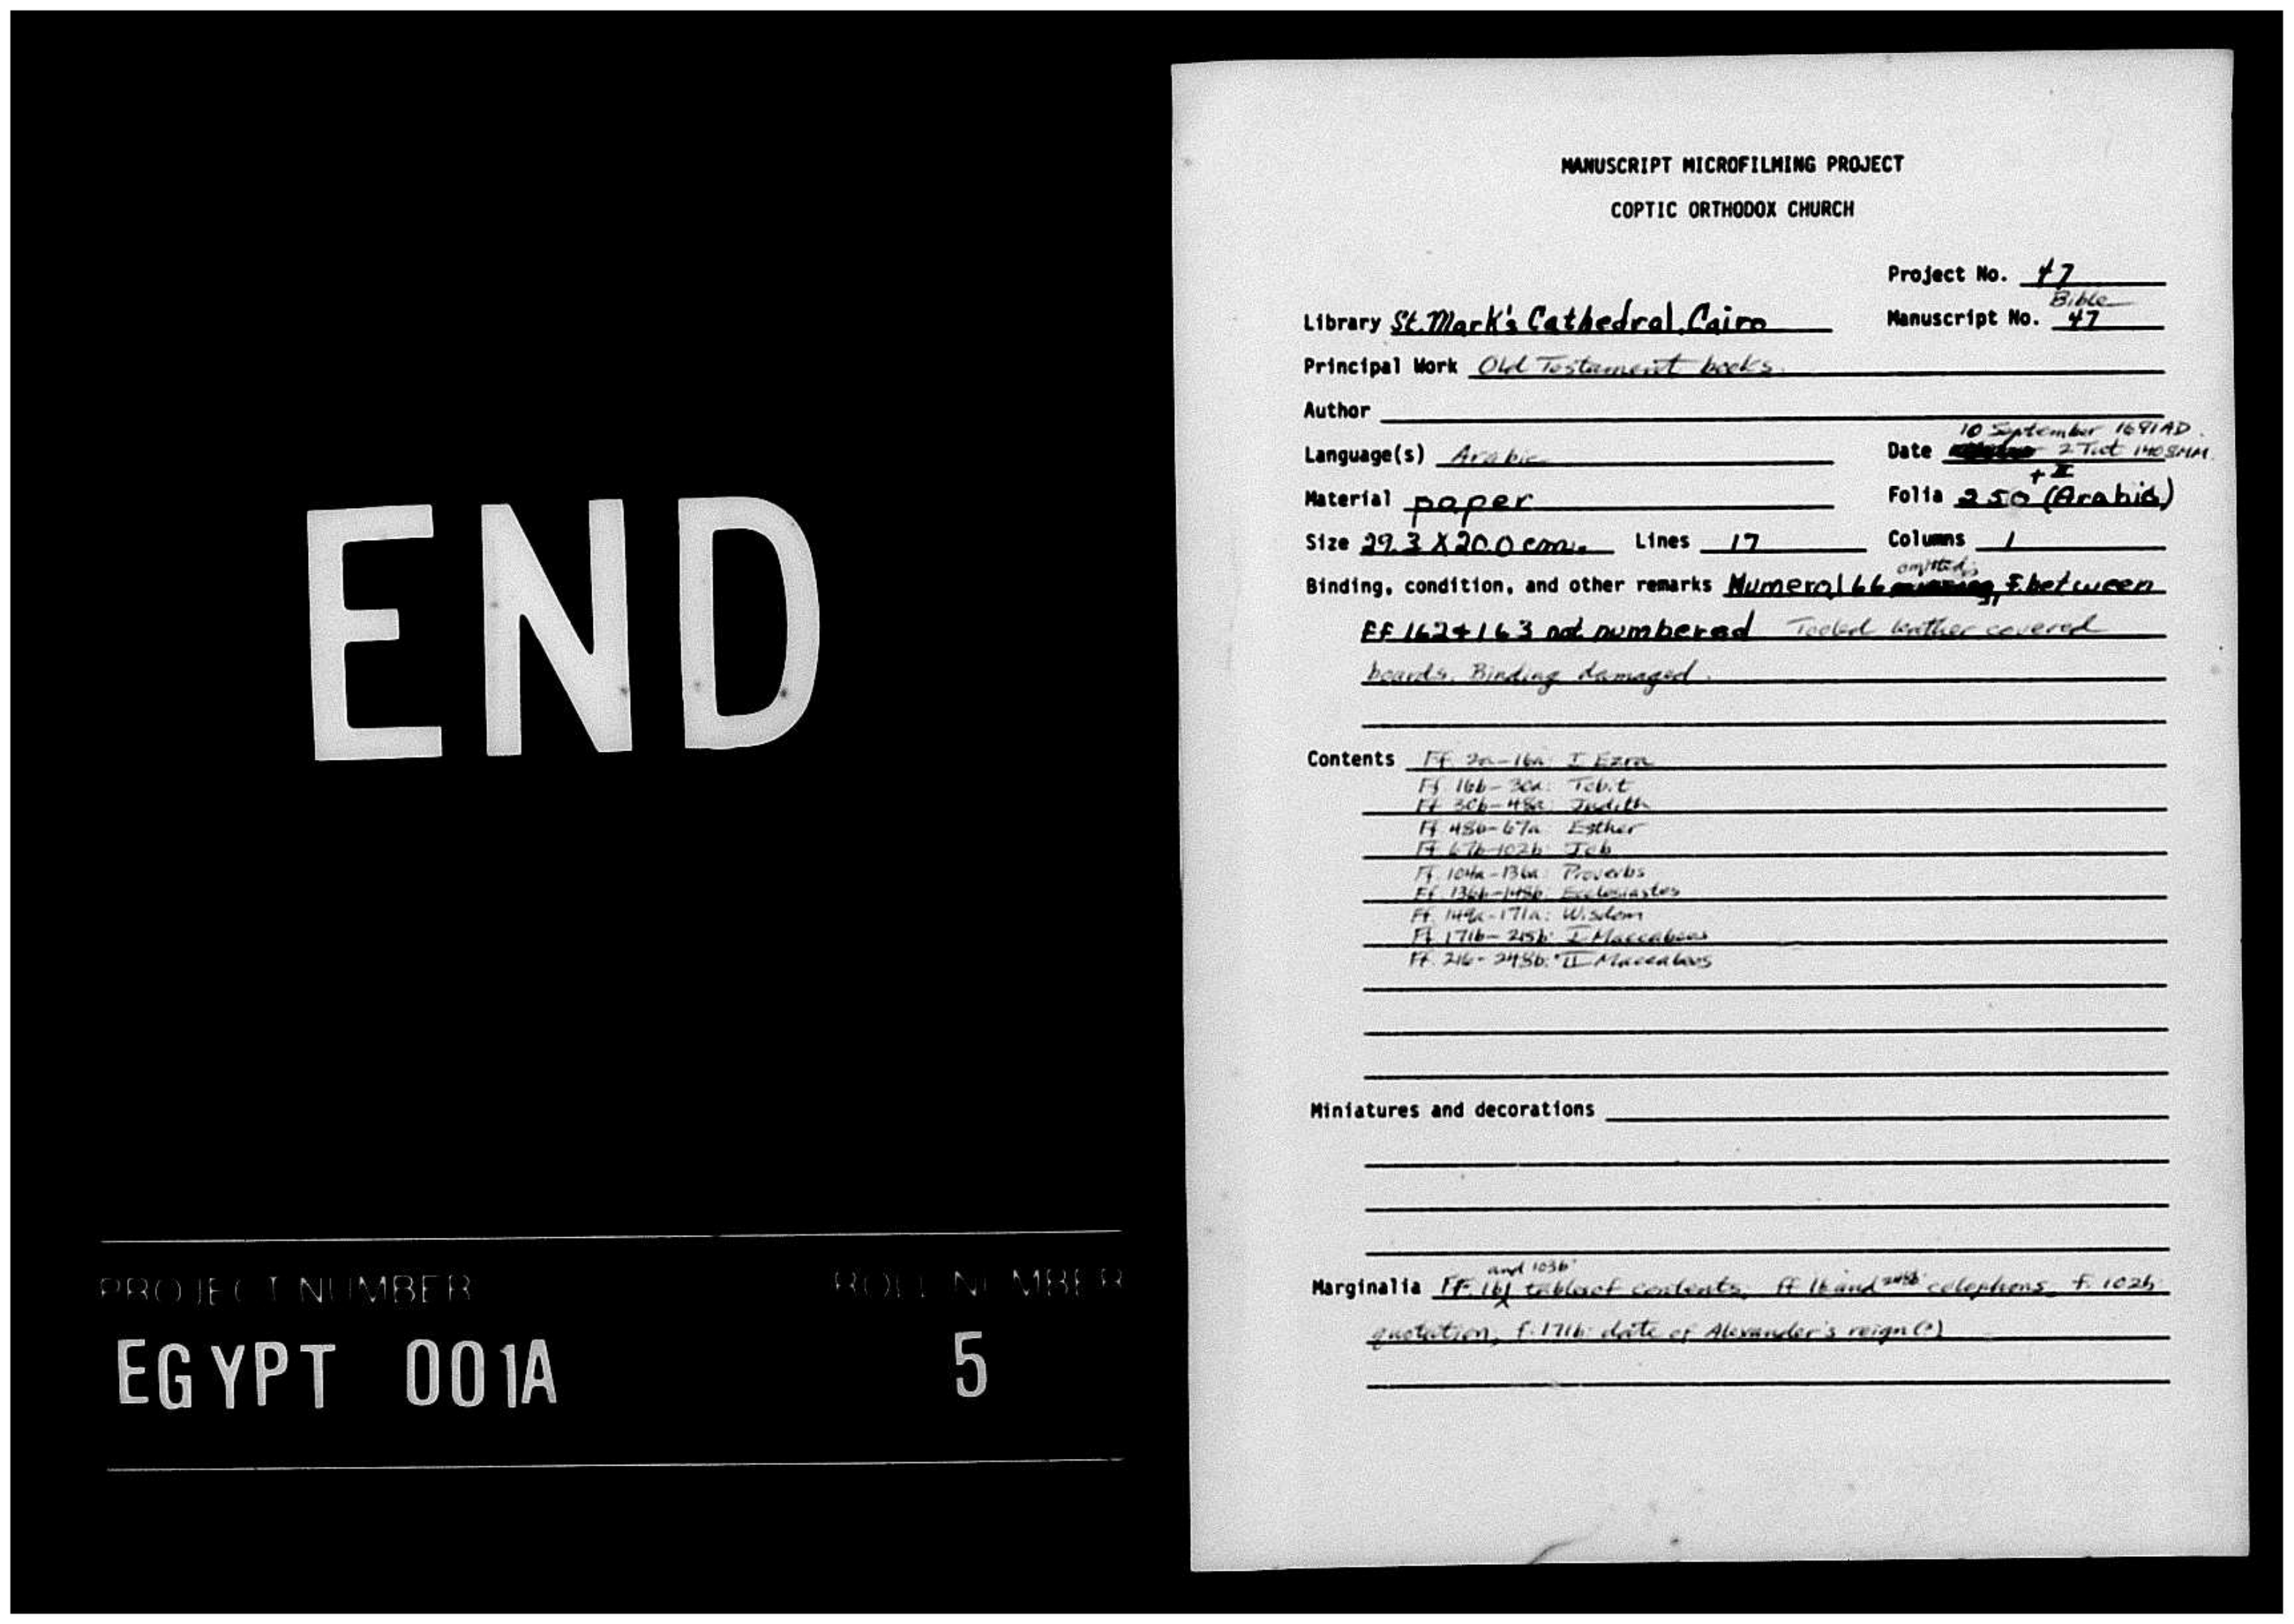 END
PROJECT NUMBER
ROLL NUMBER
EGYPT 001A
5
MANUSCRIPT MICROFILMING PROJECT
COPTIC ORTHODOX CHURCH
Project No. 47
Library St. Mark's Cathedral, Cairo
Bible
Manuscript No. 47
Principal Work Old Testament books.
Author
Language(s) Arabic
10 September 1691 AD.
Date 2 Tut 1408 MM.
Material paper
+ II
Folia 250 (Arabic)
Size 29.3 X 20.0 cm. Lines 17 Columns 1
omitted;
Binding, condition, and other remarks Numeral 66 f. between
Ff 162 + 163 not numbered Tooled leather covered
boards. Binding damaged.
Contents Ff. 2a-16a: I Ezra
Ff. 16b-30a: Tobit
Ff. 30b-48a: Judith
Ff. 48b-67a: Esther
Ff. 67b-102b: Job
Ff. 104a-136a: Proverbs
Ff. 136b-148b: Ecclesiastes
Ff. 149a-171a: Wisdom
Ff. 171b-215b: I Maccabees
Ff. 216-248b: II Maccabees
Miniatures and decorations
and 103b
Marginalia Ff. 1b table of contents, ff 1b and 248b colophons, f. 102b
quotation, f. 171b: date of Alexander's reign (?)